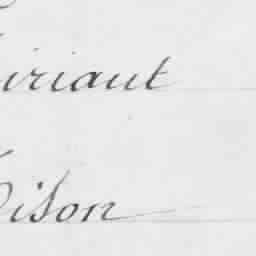 iriaut
ison